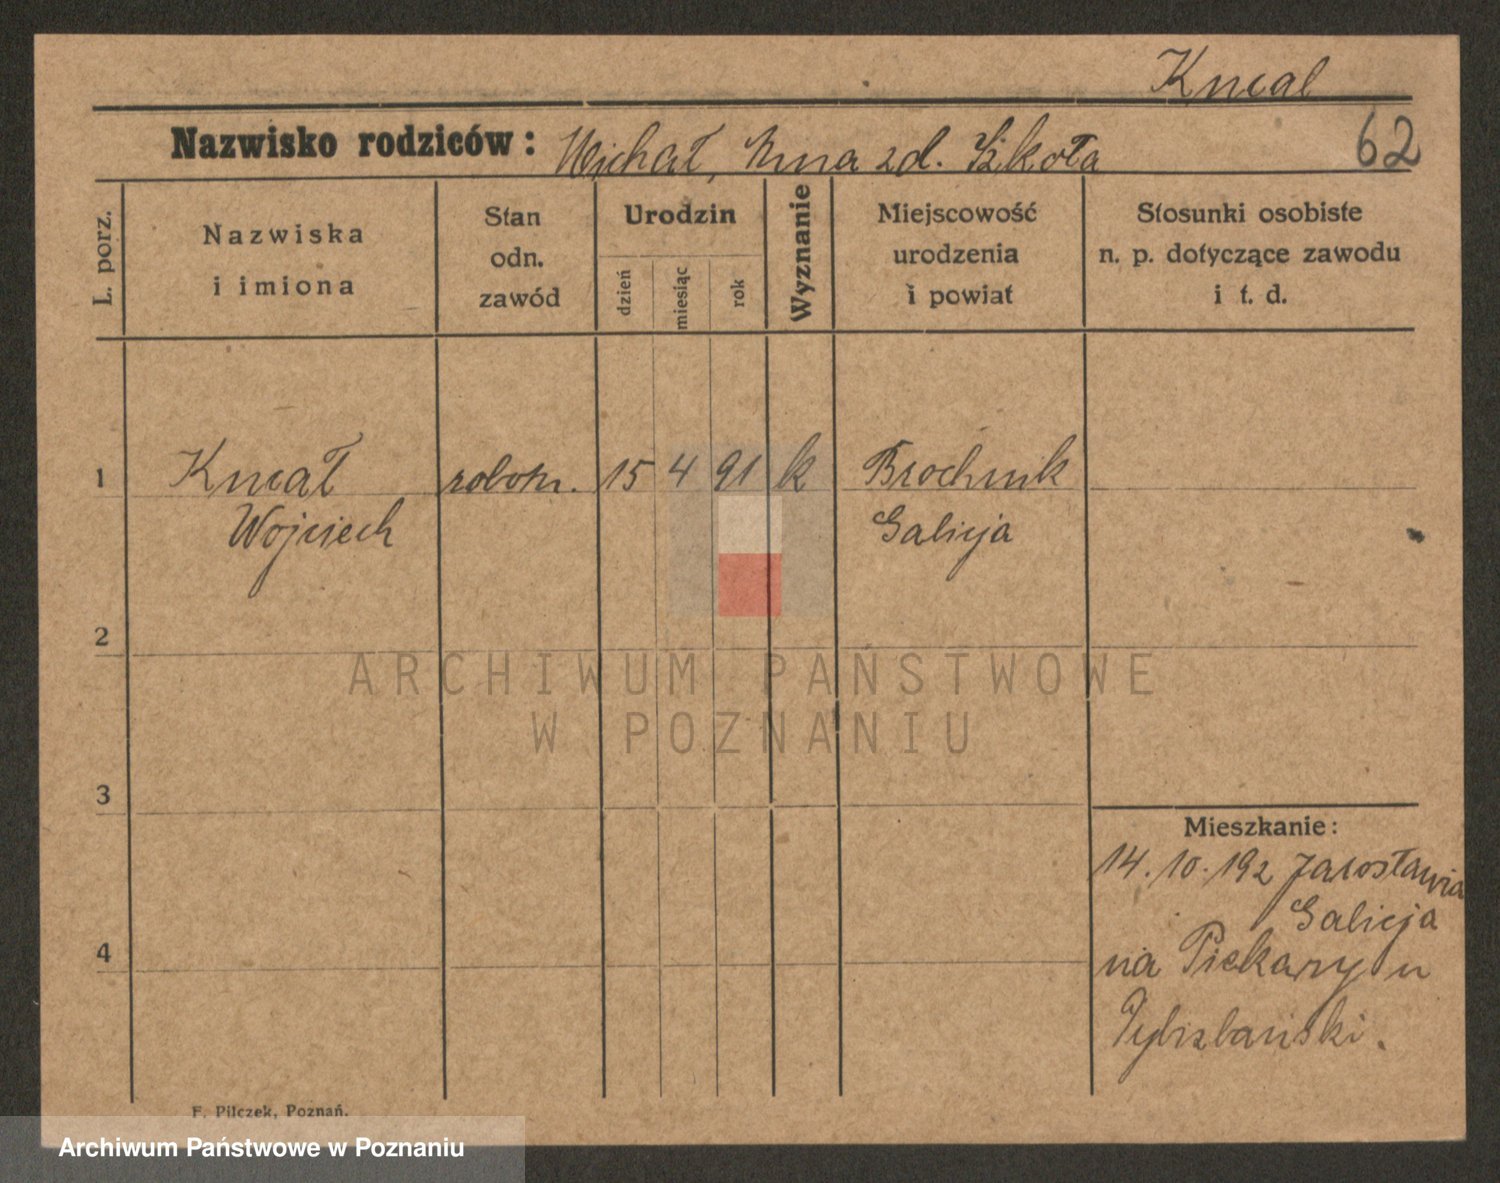 Kncal
Nazwisko rodziców: Michał, Anna zd. Szkoła 62
L. porz.
Nazwiska
i imiona
Stan
odn.
zawód
Urodzin
dzień
miesiąc
rok
Wyznanie
Miejscowość
urodzenia
i powiat
Stosunki osobiste
n. p. dotyczące zawodu
i t. d.
1 Kncał robotn. 15 4 91 k Brochnik
Wojciech Galicja
2
3
4
Mieszkanie:
14.10.192 Jarosławia
Galicja
na Piekary u
F. Pilczek, Poznań.
ARCHIWUM PAŃSTWOWE
W POZNANIU
Archiwum Państwowe w Poznaniu